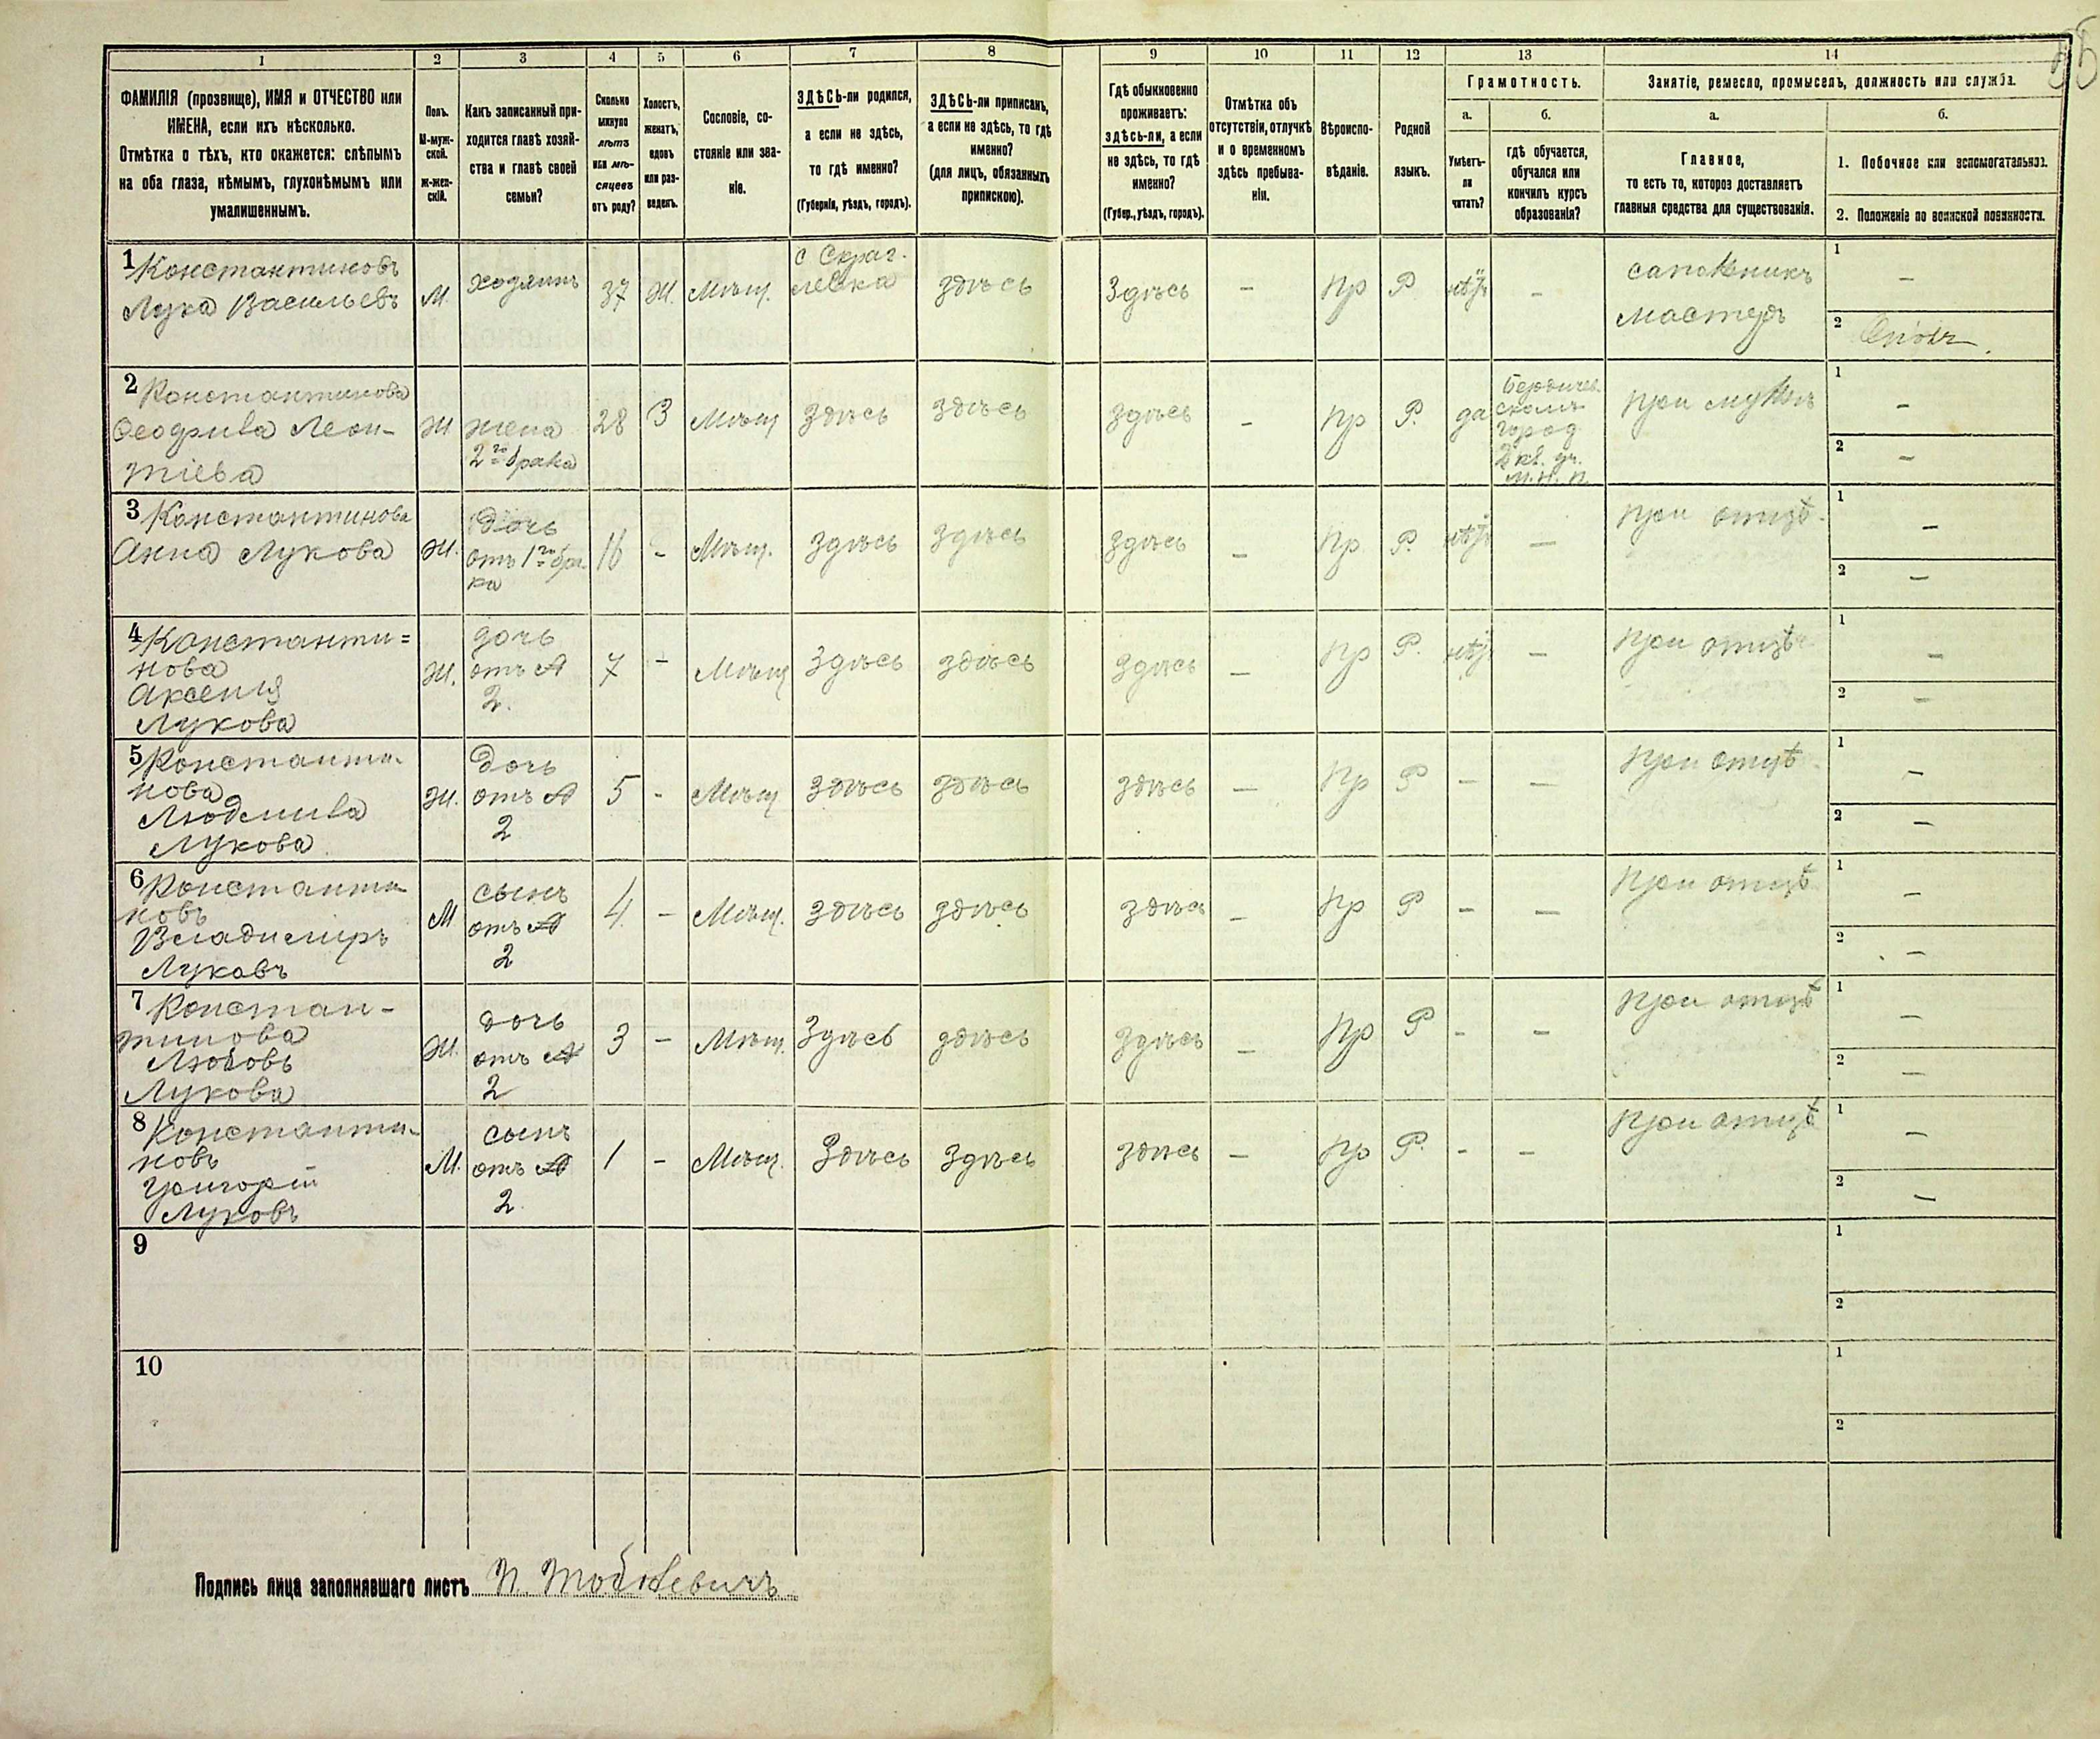 1 2 3 4 5 6 7 8 9 10 11 12 13 14
ФАМИЛІЯ (прозвище), ИМЯ и ОТЧЕСТВО или
ИМЕНА, если ихъ нѣсколько.
Отмѣтка о тѣхъ, кто окажется: слѣпымъ
на оба глаза, нѣмымъ, глухонѣмымъ или
умалишеннымъ.
Полъ.
М-муж-
ской.
Ж-жен-
скій.
Какъ записанный при-
ходится главѣ хозяй-
ства и главѣ своей
семьи?
Сколько
минуло
лѣтъ
или мѣ-
сяцевъ
отъ роду?
Холостъ,
женатъ,
вдовъ
или раз-
веденъ.
Сословіе, со-
стояніе или зва-
ніе.
ЗДѢСЬ-ли родился,
а если не здѣсь,
то гдѣ именно?
(Губернія, уѣздъ, городъ).
ЗДѢСЬ-ли приписанъ,
а если не здѣсь, то гдѣ
именно?
(для лицъ, обязанныхъ
припискою).
Гдѣ обыкновенно
проживаетъ:
здѣсь-ли, а если
не здѣсь, то гдѣ
именно?
(Губер., уѣздъ, городъ).
Отмѣтка объ
отсутствіи, отлучкѣ
и о временномъ
здѣсь пребыва-
ніи.
Вѣроиспо-
вѣданіе.
Родной
языкъ.
Грамотность.
а.
Умѣетъ-
ли
читать?
б.
гдѣ обучается,
обучался или
кончилъ курсъ
образованія?
Занятіе, ремесло, промыселъ, должность или служба.
а.
Главное,
то есть то, которое доставляетъ
главныя средства для существованія.
б.
1. Побочное или вспомогательное.
2. Положеніе по воинской повинности.
1 Константиновъ
Лука Васильевъ
М.
хозяинъ
37
Ж.
Мѣщ.
с Скраг-
левка
здѣсь
Здѣсь
–
Пр
Р
нѣтъ
–
сапожникъ
мастеръ
1 –
2
2 Константинова
Феодрила Леон-
тіева
Ж
жена
2го брака
28
З
Мѣщ
Здѣсь
здѣсь
здѣсь
–
Пр
Р.
да
Бердичев.
скомъ
город
2 кл. уч.
М. Н. П.
При мужѣ
1 –
2 –
3 Константинова
Анна Лукова
Ж.
Дочь
отъ 1го бра-
ка
16
-
Мѣщ.
здѣсь
здѣсь
здѣсь
–
Пр
Р.
нѣтъ
–
При отцѣ
1 –
2 –
4 Константи=
нова
Аксенія
Лукова
Ж.
дочь
отъ
2.
7
-
Мѣщ
Здѣсь
здѣсь
здѣсь
–
Пр
Р.
нѣтъ
–
При отцѣ
1 –
2 –
5 Константи-
нова
Людмила
Лукова
Ж.
Дочь
отъ
2
5
-
Мѣщ
здѣсь
здѣсь
здѣсь
–
Пр
Р
–
–
При отцѣ
1 –
2 –
6 Константи-
новъ
Владимиръ
Луковъ
М
сынъ
отъ
2
4
–
Мѣщ.
здѣсь
здѣсь
здѣсь
–
Пр
Р
–
–
При отцѣ
1 –
2 –
7 Констан-
тинова
Любовь
Лукова
Ж.
дочь
отъ
2
3
–
Мѣщ.
Здѣсь
здѣсь
здѣсь
–
Пр
Р
–
–
При отцѣ
1 –
2 –
8 Константи-
новъ
Григорій
Луковъ
М.
сынъ
отъ
2
1
–
Мѣщ.
Здѣсь
Здѣсь
здѣсь
–
Пр
Р.
-
–
При отцѣ
1 –
2 –
9
1
2
10
1
2
Подпись лица заполнявшаго листъ П.